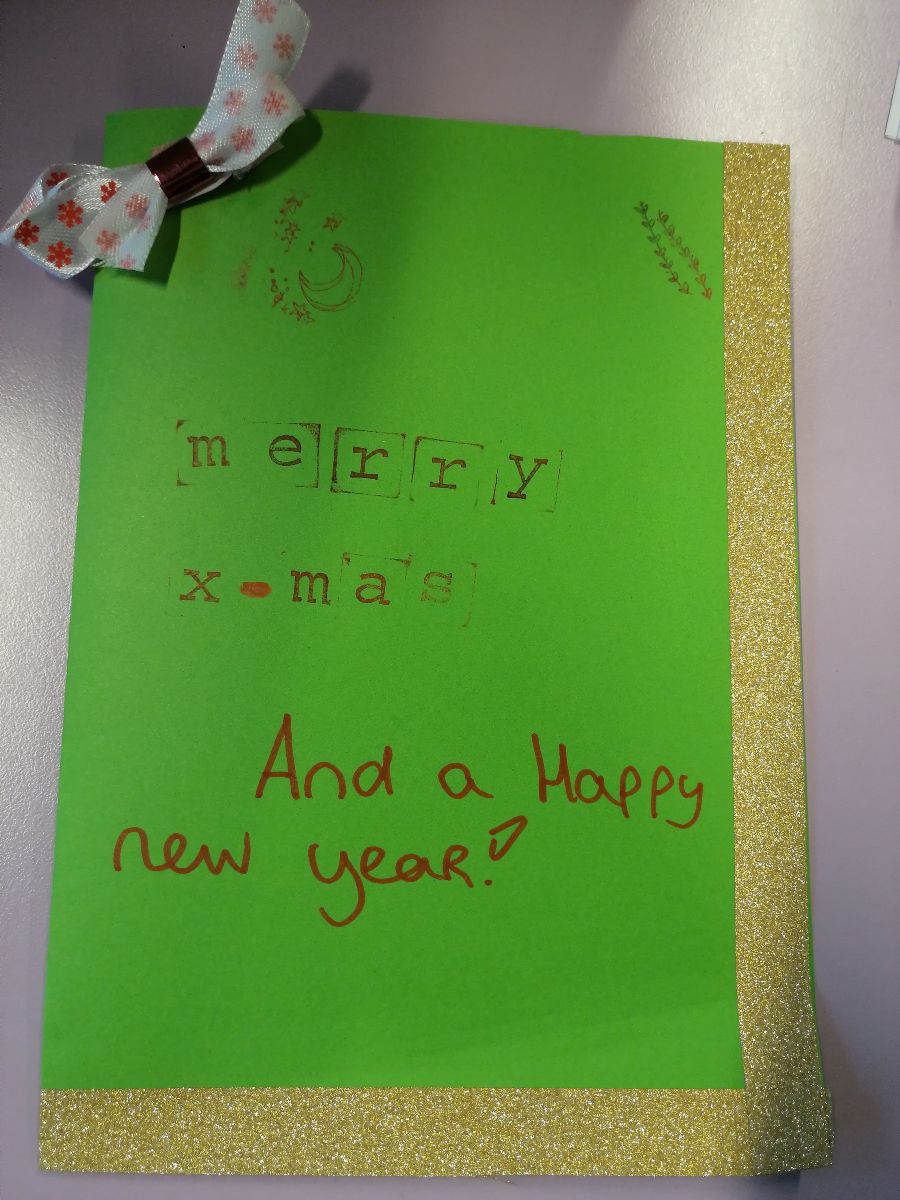 merry
x-mas
And a Happy
new year!